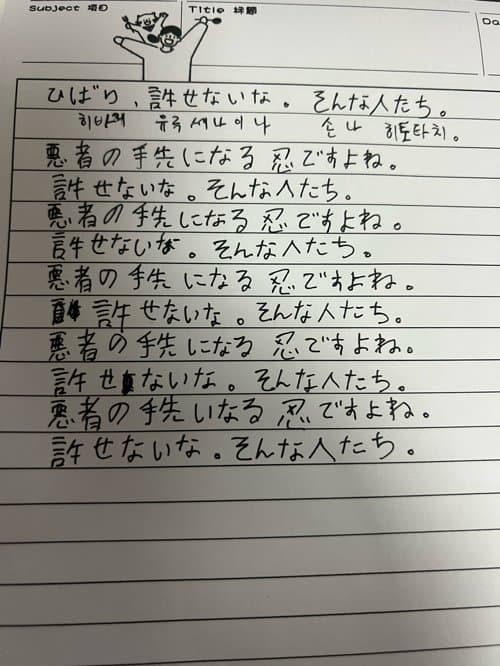 Subject 項目
Title 標題
Da
ひばり、許せないな。そんな人たち。
히바리 유루세나이나 손나 히토타치。
悪者の手先になる忍ですよね。
許せないな。そんな人たち。
悪者の手先になる忍ですよね。
許せないな。そんな人たち。
悪者の手先になる忍ですよね。
許せないな。そんな人たち。
悪者の手先になる忍ですよね。
許せないな。そんな人たち。
悪者の手先いなる忍ですよね。
許せないな。そんな人たち。